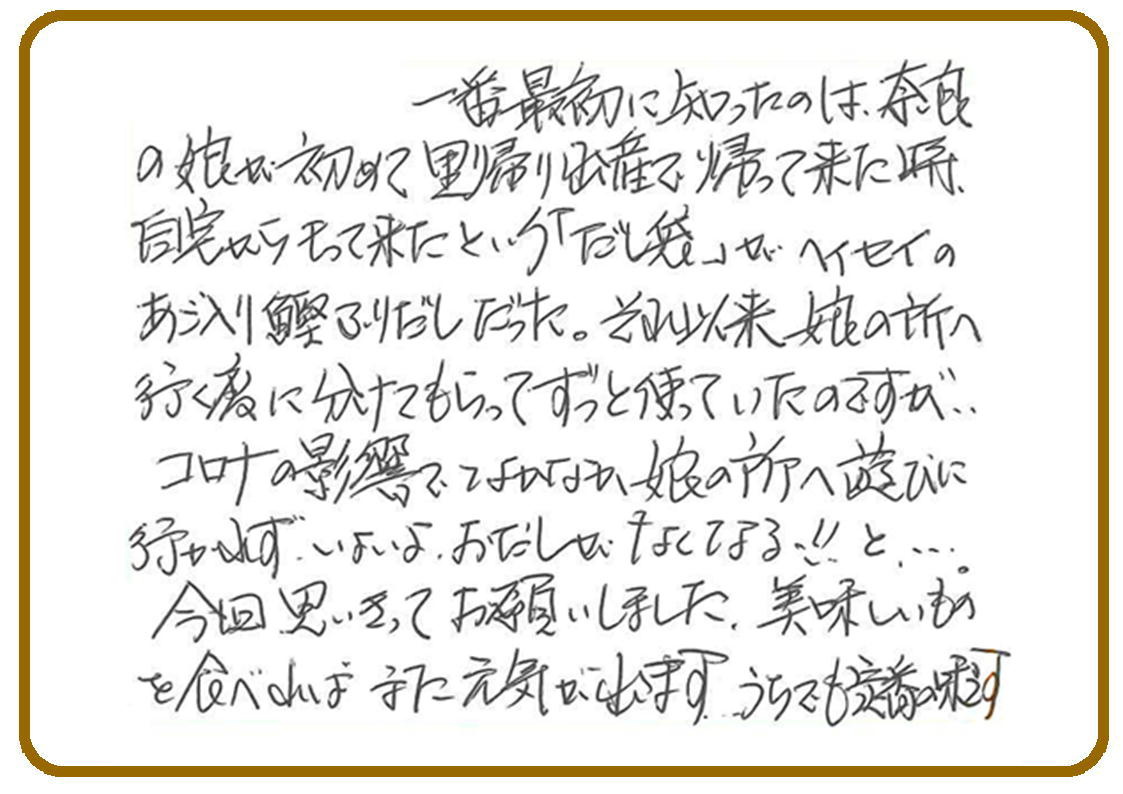 一番最初に知ったのは、奈良
の娘が初めて里帰り出産で帰って来た時、
自宅からもって来たという「だし袋」が ヘイセイの
あじ入り鰹ふりだしだった。それ以来 娘の所へ
行く度に分けてもらってずっと使っていたのですが..
コロナの影響でなかなか、娘の所へ遊びに
行かれず、いよいよ、おだしが なくなる!! と....。
今回 思いきって お願いしました。美味しいもの
を食べれば また元気が出ます うちでも定番の味です